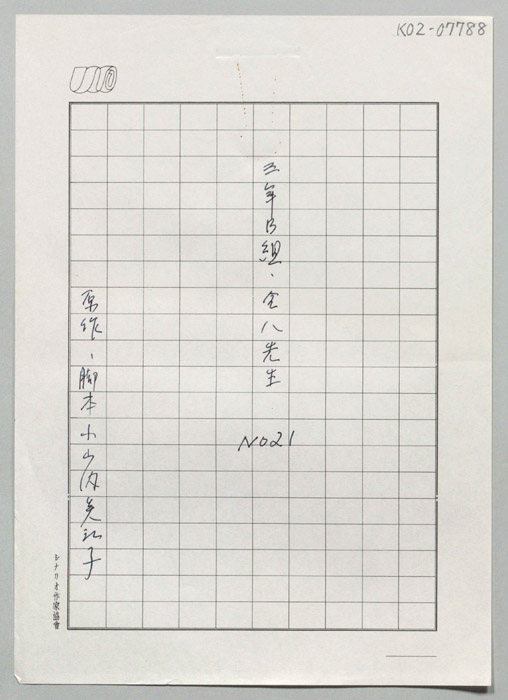 K02-07788
三年B組、金八先生
NO21
原作、脚本小山内美江子
シナリオ作家協會